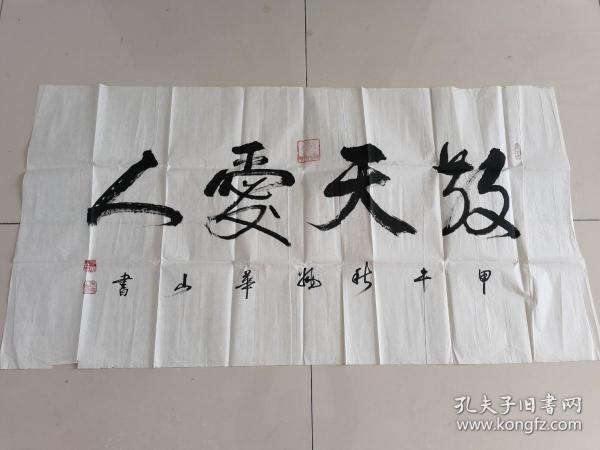 敬天愛人
甲午秋楊華山書
孔夫子旧书网
www.kongfz.com